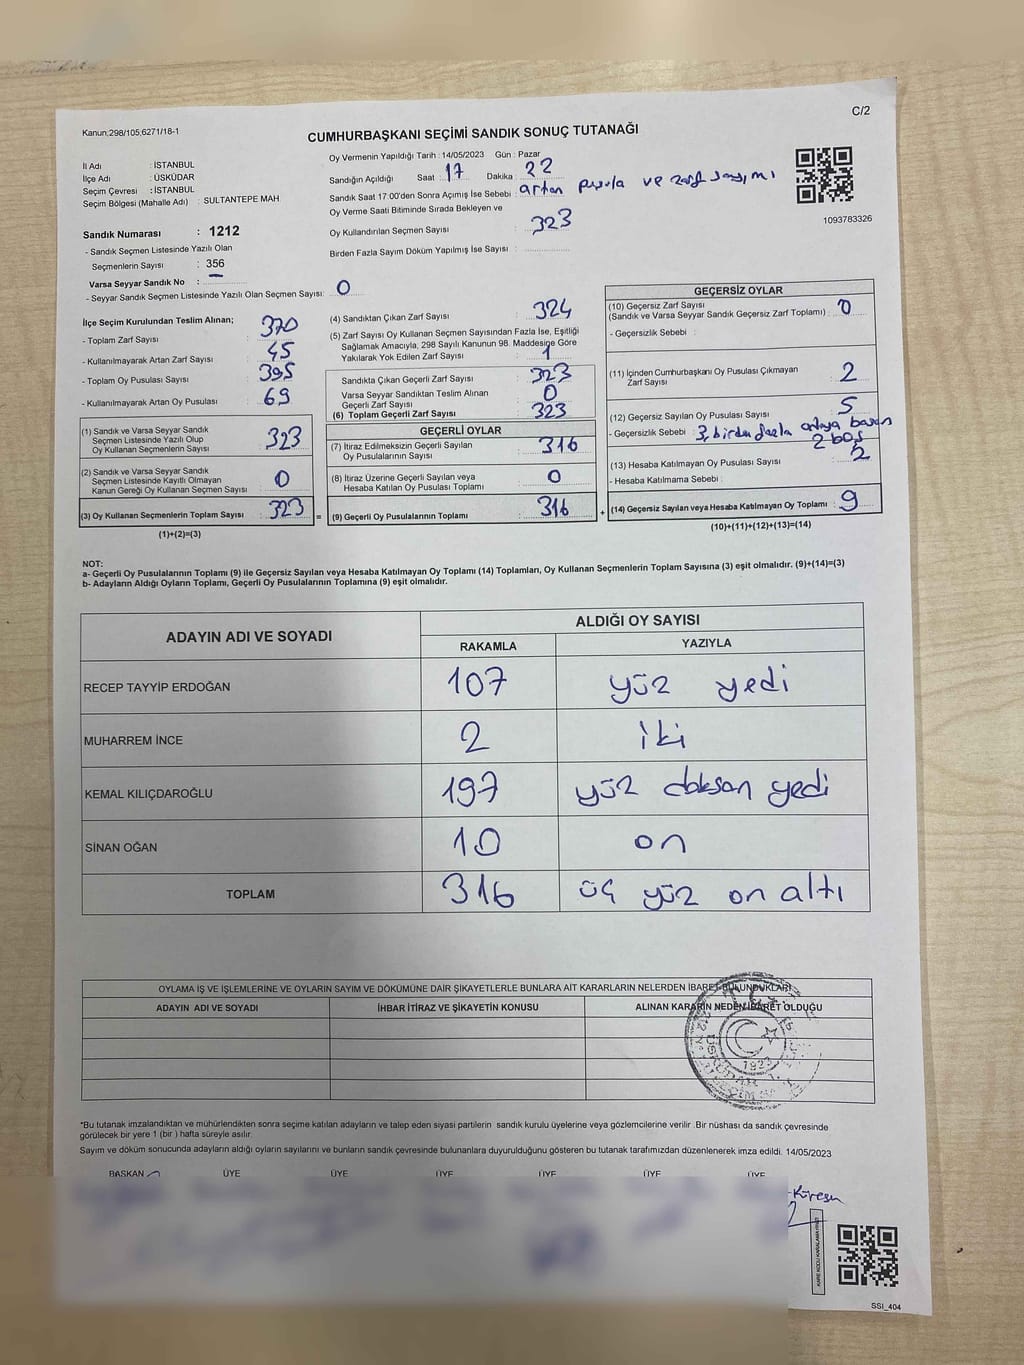 C/2
Kanun;298/105,6271/18-1
CUMHURBAŞKANI SEÇİMİ SANDIK SONUÇ TUTANAĞI
İl Adı : İSTANBUL
İlçe Adı : ÜSKÜDAR
Seçim Çevresi : İSTANBUL
Seçim Bölgesi (Mahalle Adı) : SULTANTEPE MAH
Oy Vermenin Yapıldığı Tarih : 14/05/2023 Gün : Pazar
Sandığın Açıldığı Saat : 17 Dakika : 22
Sandık Saat 17:00'den Sonra Açımış İse Sebebi : artan pusula ve zarf sayımı
Oy Verme Saati Bitiminde Sırada Bekleyen ve
Oy Kullandırılan Seçmen Sayısı : 323
Birden Fazla Sayım Döküm Yapılmış İse Sayısı :
1093783326
Sandık Numarası : 1212
- Sandık Seçmen Listesinde Yazılı Olan
Seçmenlerin Sayısı : 356
Varsa Seyyar Sandık No :
- Seyyar Sandık Seçmen Listesinde Yazılı Olan Seçmen Sayısı: 0
İlçe Seçim Kurulundan Teslim Alınan;
- Toplam Zarf Sayısı : 370
- Kullanılmayarak Artan Zarf Sayısı : 45
- Toplam Oy Pusulası Sayısı : 395
- Kullanılmayarak Artan Oy Pusulası : 69
(1) Sandık ve Varsa Seyyar Sandık
Seçmen Listesinde Yazılı Olup
Oy Kullanan Seçmenlerin Sayısı : 323
(2) Sandık ve Varsa Seyyar Sandık
Seçmen Listesinde Kayıtlı Olmayan
Kanun Gereği Oy Kullanan Seçmen Sayısı : 0
(3) Oy Kullanan Seçmenlerin Toplam Sayısı : 323
(1)+(2)=(3)
(4) Sandıktan Çıkan Zarf Sayısı : 324
(5) Zarf Sayısı Oy Kullanan Seçmen Sayısından Fazla İse, Eşitliği
Sağlamak Amacıyla, 298 Sayılı Kanunun 98. Maddesine Göre
Yakılarak Yok Edilen Zarf Sayısı : 1
Sandıkta Çıkan Geçerli Zarf Sayısı : 323
Varsa Seyyar Sandıktan Teslim Alınan
Geçerli Zarf Sayısı : 0
(6) Toplam Geçerli Zarf Sayısı : 323
GEÇERLİ OYLAR
(7) İtiraz Edilmeksizin Geçerli Sayılan
Oy Pusulalarının Sayısı : 316
(8) İtiraz Üzerine Geçerli Sayılan veya
Hesaba Katılan Oy Pusulası Toplamı : 0
= (9) Geçerli Oy Pusulalarının Toplamı : 316
GEÇERSİZ OYLAR
(10) Geçersiz Zarf Sayısı
(Sandık ve Varsa Seyyar Sandık Geçersiz Zarf Toplamı) : 0
- Geçersizlik Sebebi :
(11) İçinden Cumhurbaşkanı Oy Pusulası Çıkmayan
Zarf Sayısı : 2
(12) Geçersiz Sayılan Oy Pusulası Sayısı : 5
- Geçersizlik Sebebi : 3, birden fazla adaya basan
2 boş
(13) Hesaba Katılmayan Oy Pusulası Sayısı : 2
- Hesaba Katılmama Sebebi :
+ (14) Geçersiz Sayılan veya Hesaba Katılmayan Oy Toplamı : 9
(10)+(11)+(12)+(13)=(14)
NOT:
a- Geçerli Oy Pusulalarının Toplamı (9) ile Geçersiz Sayılan veya Hesaba Katılmayan Oy Toplamı (14) Toplamları, Oy Kullanan Seçmenlerin Toplam Sayısına (3) eşit olmalıdır. (9)+(14)=(3)
b- Adayların Aldığı Oyların Toplamı, Geçerli Oy Pusulalarının Toplamına (9) eşit olmalıdır.
ADAYIN ADI VE SOYADI ALDIĞI OY SAYISI
RAKAMLA YAZIYLA
RECEP TAYYİP ERDOĞAN 107 yüz yedi
MUHARREM İNCE 2 iki
KEMAL KILIÇDAROĞLU 197 yüz doksan yedi
SİNAN OĞAN 10 on
TOPLAM 316 üç yüz on altı
OYLAMA İŞ VE İŞLEMLERİNE VE OYLARIN SAYIM VE DÖKÜMÜNE DAİR ŞİKAYETLERLE BUNLARA AİT KARARLARIN NELERDEN İBARET BULUNDUKLARI
ADAYIN ADI VE SOYADI İHBAR İTİRAZ VE ŞİKAYETİN KONUSU ALINAN KARARIN NEDEN İBARET OLDUĞU
T.C.
1923
ÜSKÜDAR
*Bu tutanak imzalandıktan ve mühürlendikten sonra seçime katılan adayların ve talep eden siyasi partilerin sandık kurulu üyelerine veya gözlemcilerine verilir .Bir nüshası da sandık çevresinde
görülecek bir yere 1 (bir ) hafta süreyle asılır.
Sayım ve döküm sonucunda adayların aldığı oyların sayılarını ve bunların sandık çevresinde bulunanlara duyurulduğunu gösteren bu tutanak tarafımızdan düzenlenerek imza edildi. 14/05/2023
BAŞKAN ÜYE ÜYE ÜYE ÜYE ÜYE ÜYE
SSI_404